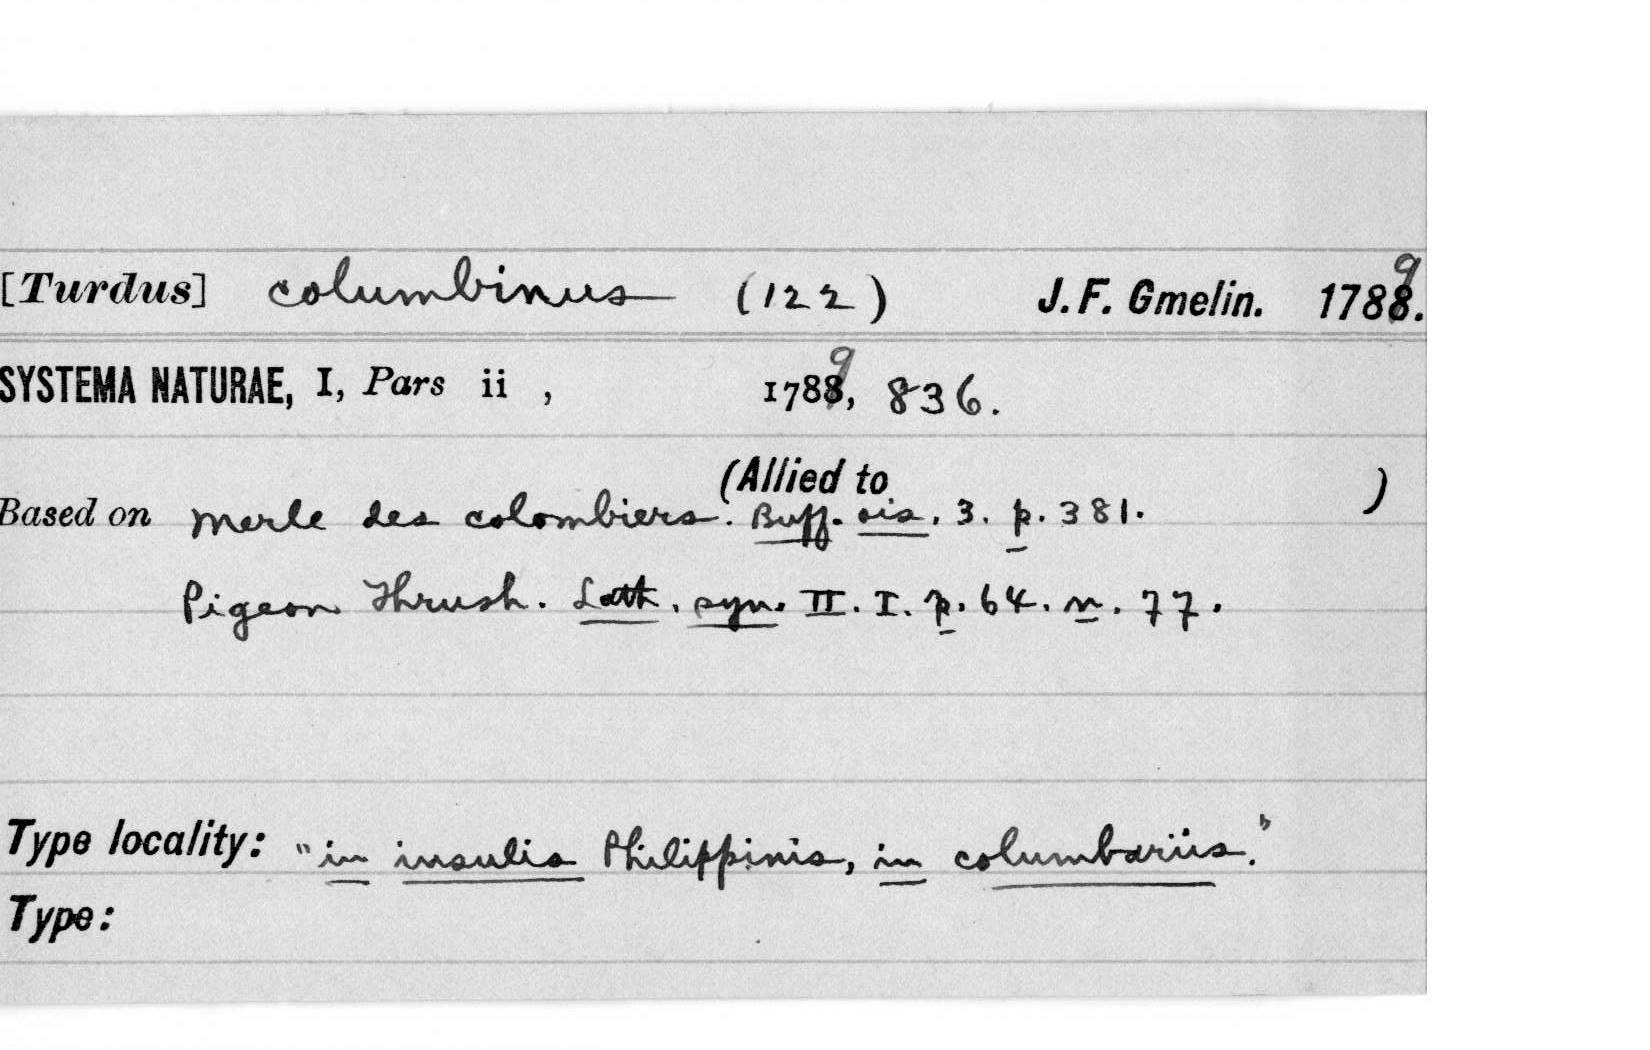 [Turdus] columbinus (122) J. F. Gmelin. 1789.
SYSTEMA NATURAE, I, Pars ii , 1789, 836.
(Allied to )
Based on Merle des colombiers. Buff. ois. 3. p. 381.
Pigeon Thrush. Lath. syn. II. I. p. 64. n. 77.
Type locality: "in insulis Philippinis, in columbariis."
Type: